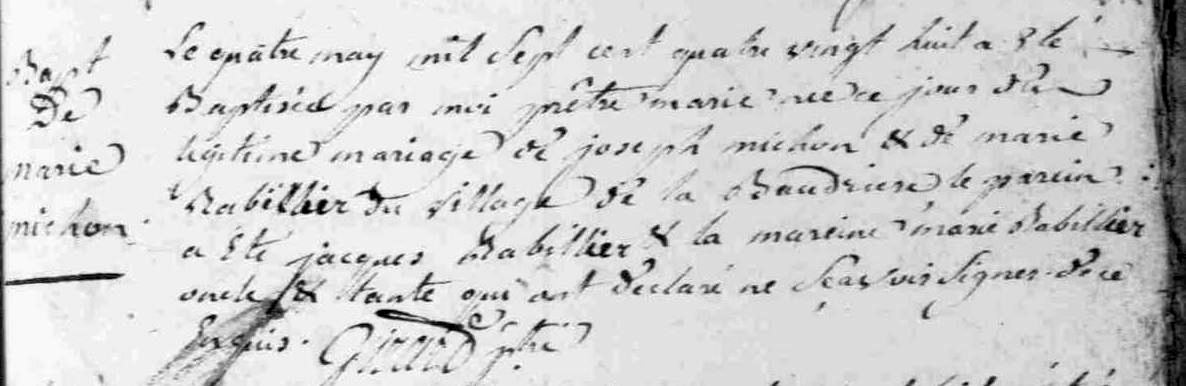 Bapt
De
marie
michon
Le quatre may mil Sept cent quatre vingt huit a Eté
Baptisée par moi prêtre marie née ce jour du
légitime mariage de joseph michon & de marie
Rabillier du village de la Baudriere le parein
a Eté jacques Rabillier & la mareine marie Rabillier
oncle & ttante qui ont déclaré ne Sçavoir Signer de ce
Enquis. Girard ptre